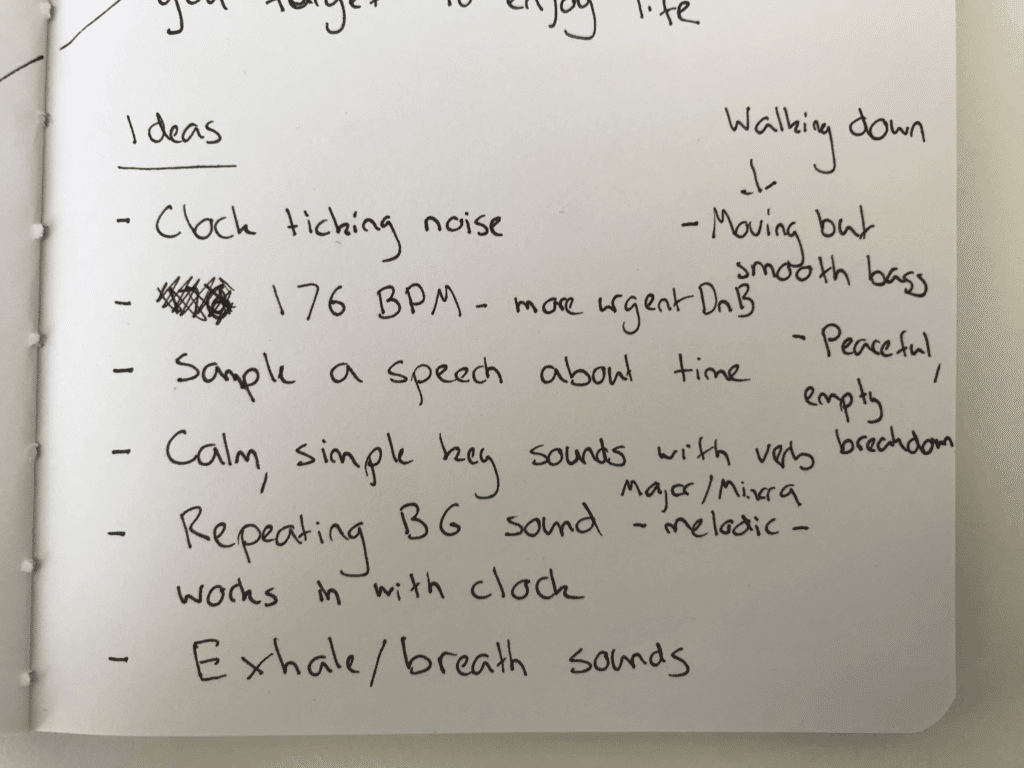 you forget to enjoy life
Ideas
- Clock ticking noise
- 176 BPM - more urgent DnB
- Sample a speech about time
- Calm, simple key sounds with verb
- Repeating BG sound - melodic -
Major/Minor
works in with clock
- Exhale/breath sounds
Walking down
↓
- Moving but
smooth bass
- Peaceful,
empty
breakdown